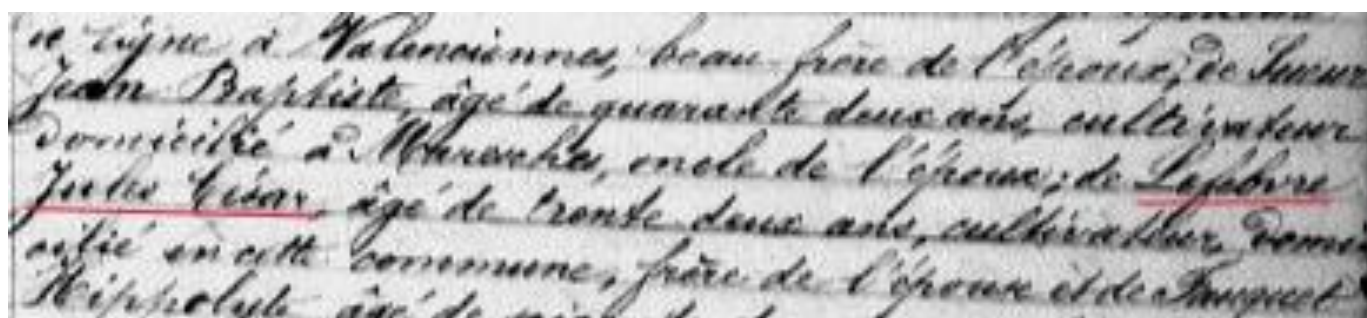 de ligne à Valenciennes, beau-frère de l'époux; de Sueur
Jean Baptiste, âgé de quarante deux ans, cultivateur
domicilié à Maresches, oncle de l'époux; de Lefebvre
Jules César, âgé de trente deux ans, cultivateur, domi
cilié en cette commune, frère de l'épouse et de Fauquet
Hippolyte âgé de